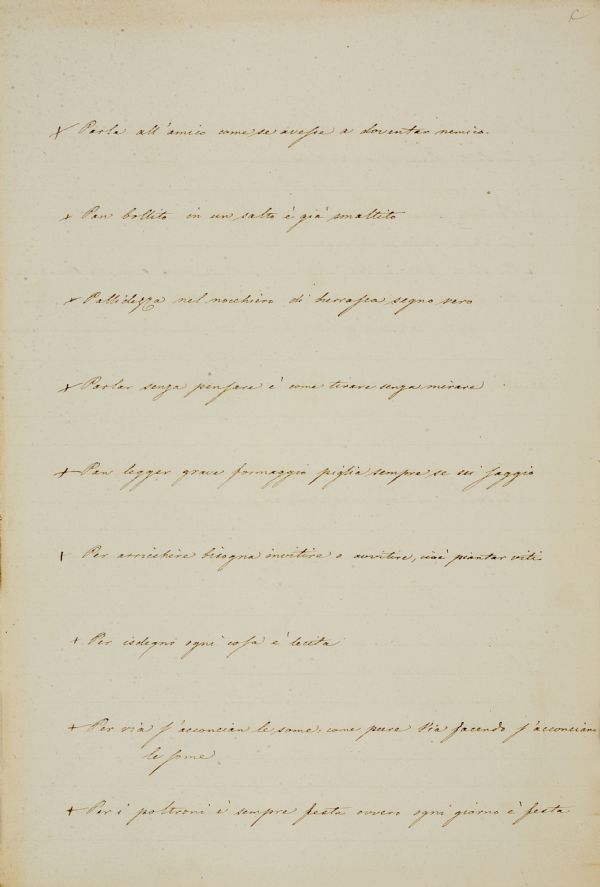 + Parla all'amico come se avesse a doventar nemico.
+ Pan bollito in un salto è già smaltito
+ Pallidezza nel nocchiero di burrasca segno vero
+ Parlar senza pensare è come tirare senza mirare
+ Pan legger grave formaggio piglia sempre se sei saggio
+ Per arricchire bisogna invitire o avvitire, cioè piantar viti
+ Per isdegno ogni cosa è lecita
+ Per via s'acconcian le some come pure Via facendo s'acconcian
le some
+ Per i poltroni è sempre festa ovvero ogni giorno è festa